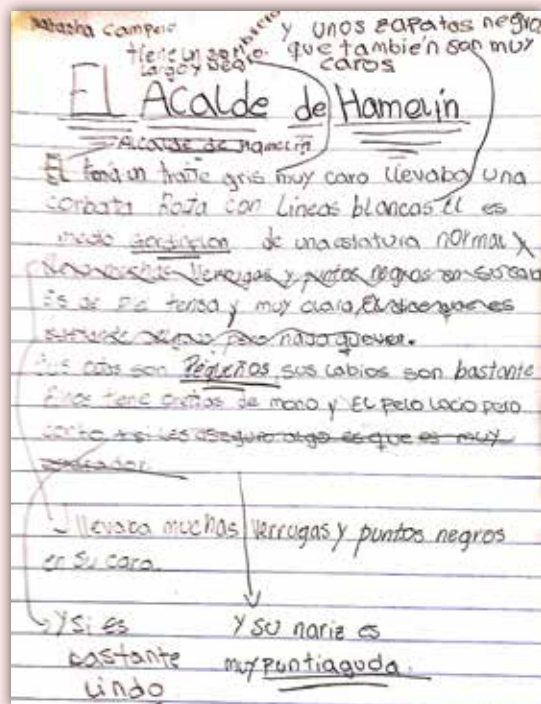 Natasha Campero
tiene un sombrero
largo y negro.
y unos zapatos negro
que también son muy
caros
El Acalde de Hamelin
Alcalde de Hamelin
El tenia un traje gris muy caro llevaba una
corbata Roja con Lineas blancas El es
medio gordinflon de una estatura normal y
muchas verrugas y puntos negros en su cara
Es de piel tensa y muy clara, El
pero nada que ver.
Sus ojos son Pequeños sus labios son bastante
finos tiene orejas de mono y El pelo Loco pero
corto y si les aseguro algo es que es muy
llevaba muchas verrugas y puntos negros
en su cara.
Y si es
bastante
Lindo
Y su nariz es
muy puntiaguda.